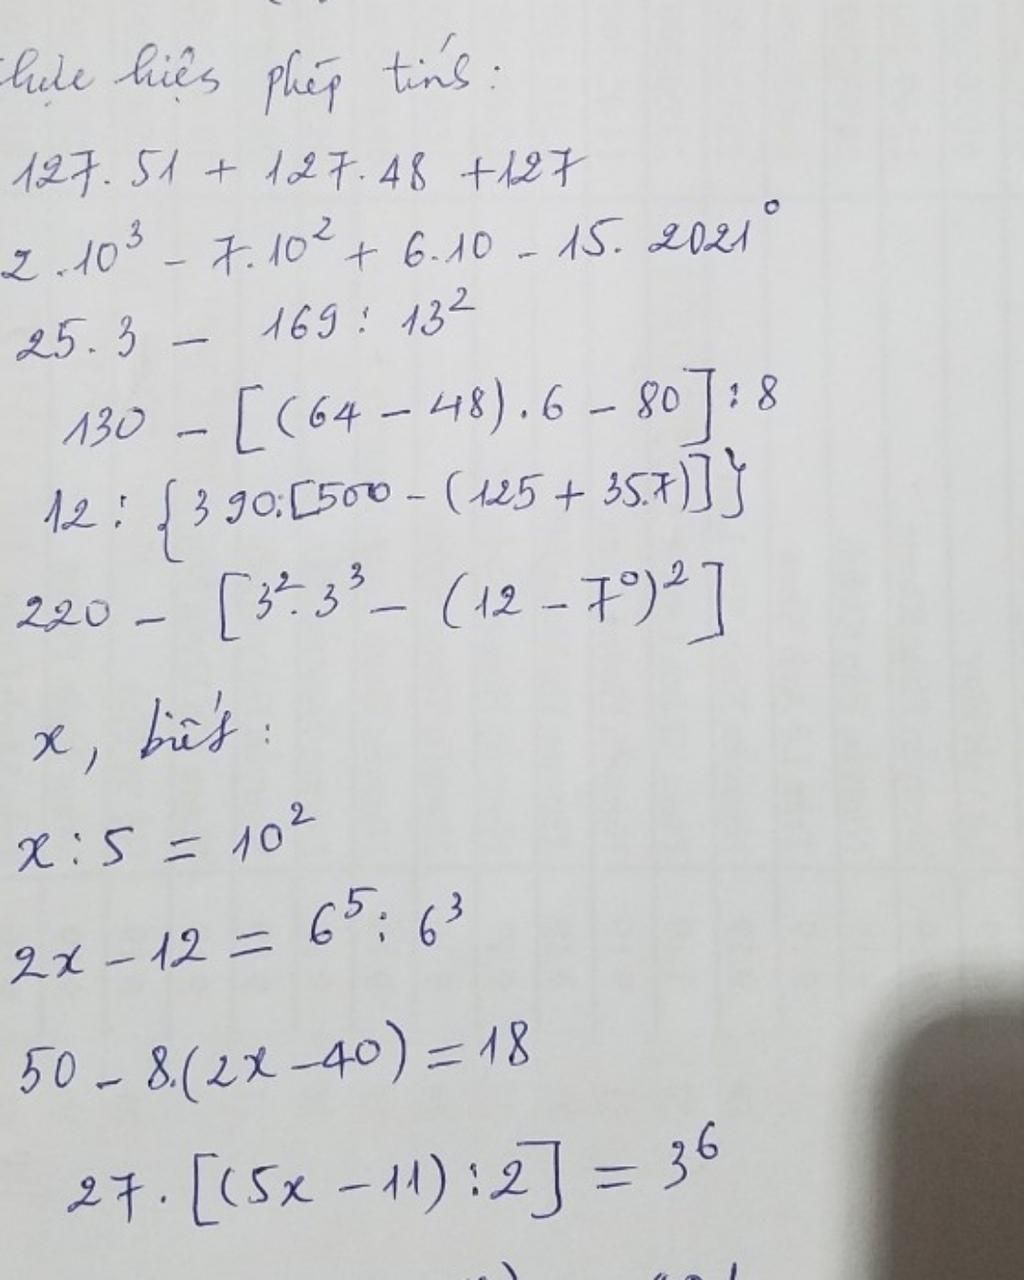 thực hiện phép tính:
127.51 + 127.48 + 127
2.10³ - 7.10² + 6.10 - 15. 2021⁰
25.3 - 169 : 13²
130 - [(64 - 48).6 - 80] : 8
12 : {390:[500 - (125 + 35.7)]}
220 - [3².3³ - (12 - 7⁰)²]
x, biết:
x : 5 = 10²
2x - 12 = 6⁵ : 6³
50 - 8.(2x - 40) = 18
27.[(5x - 11) : 2] = 3⁶